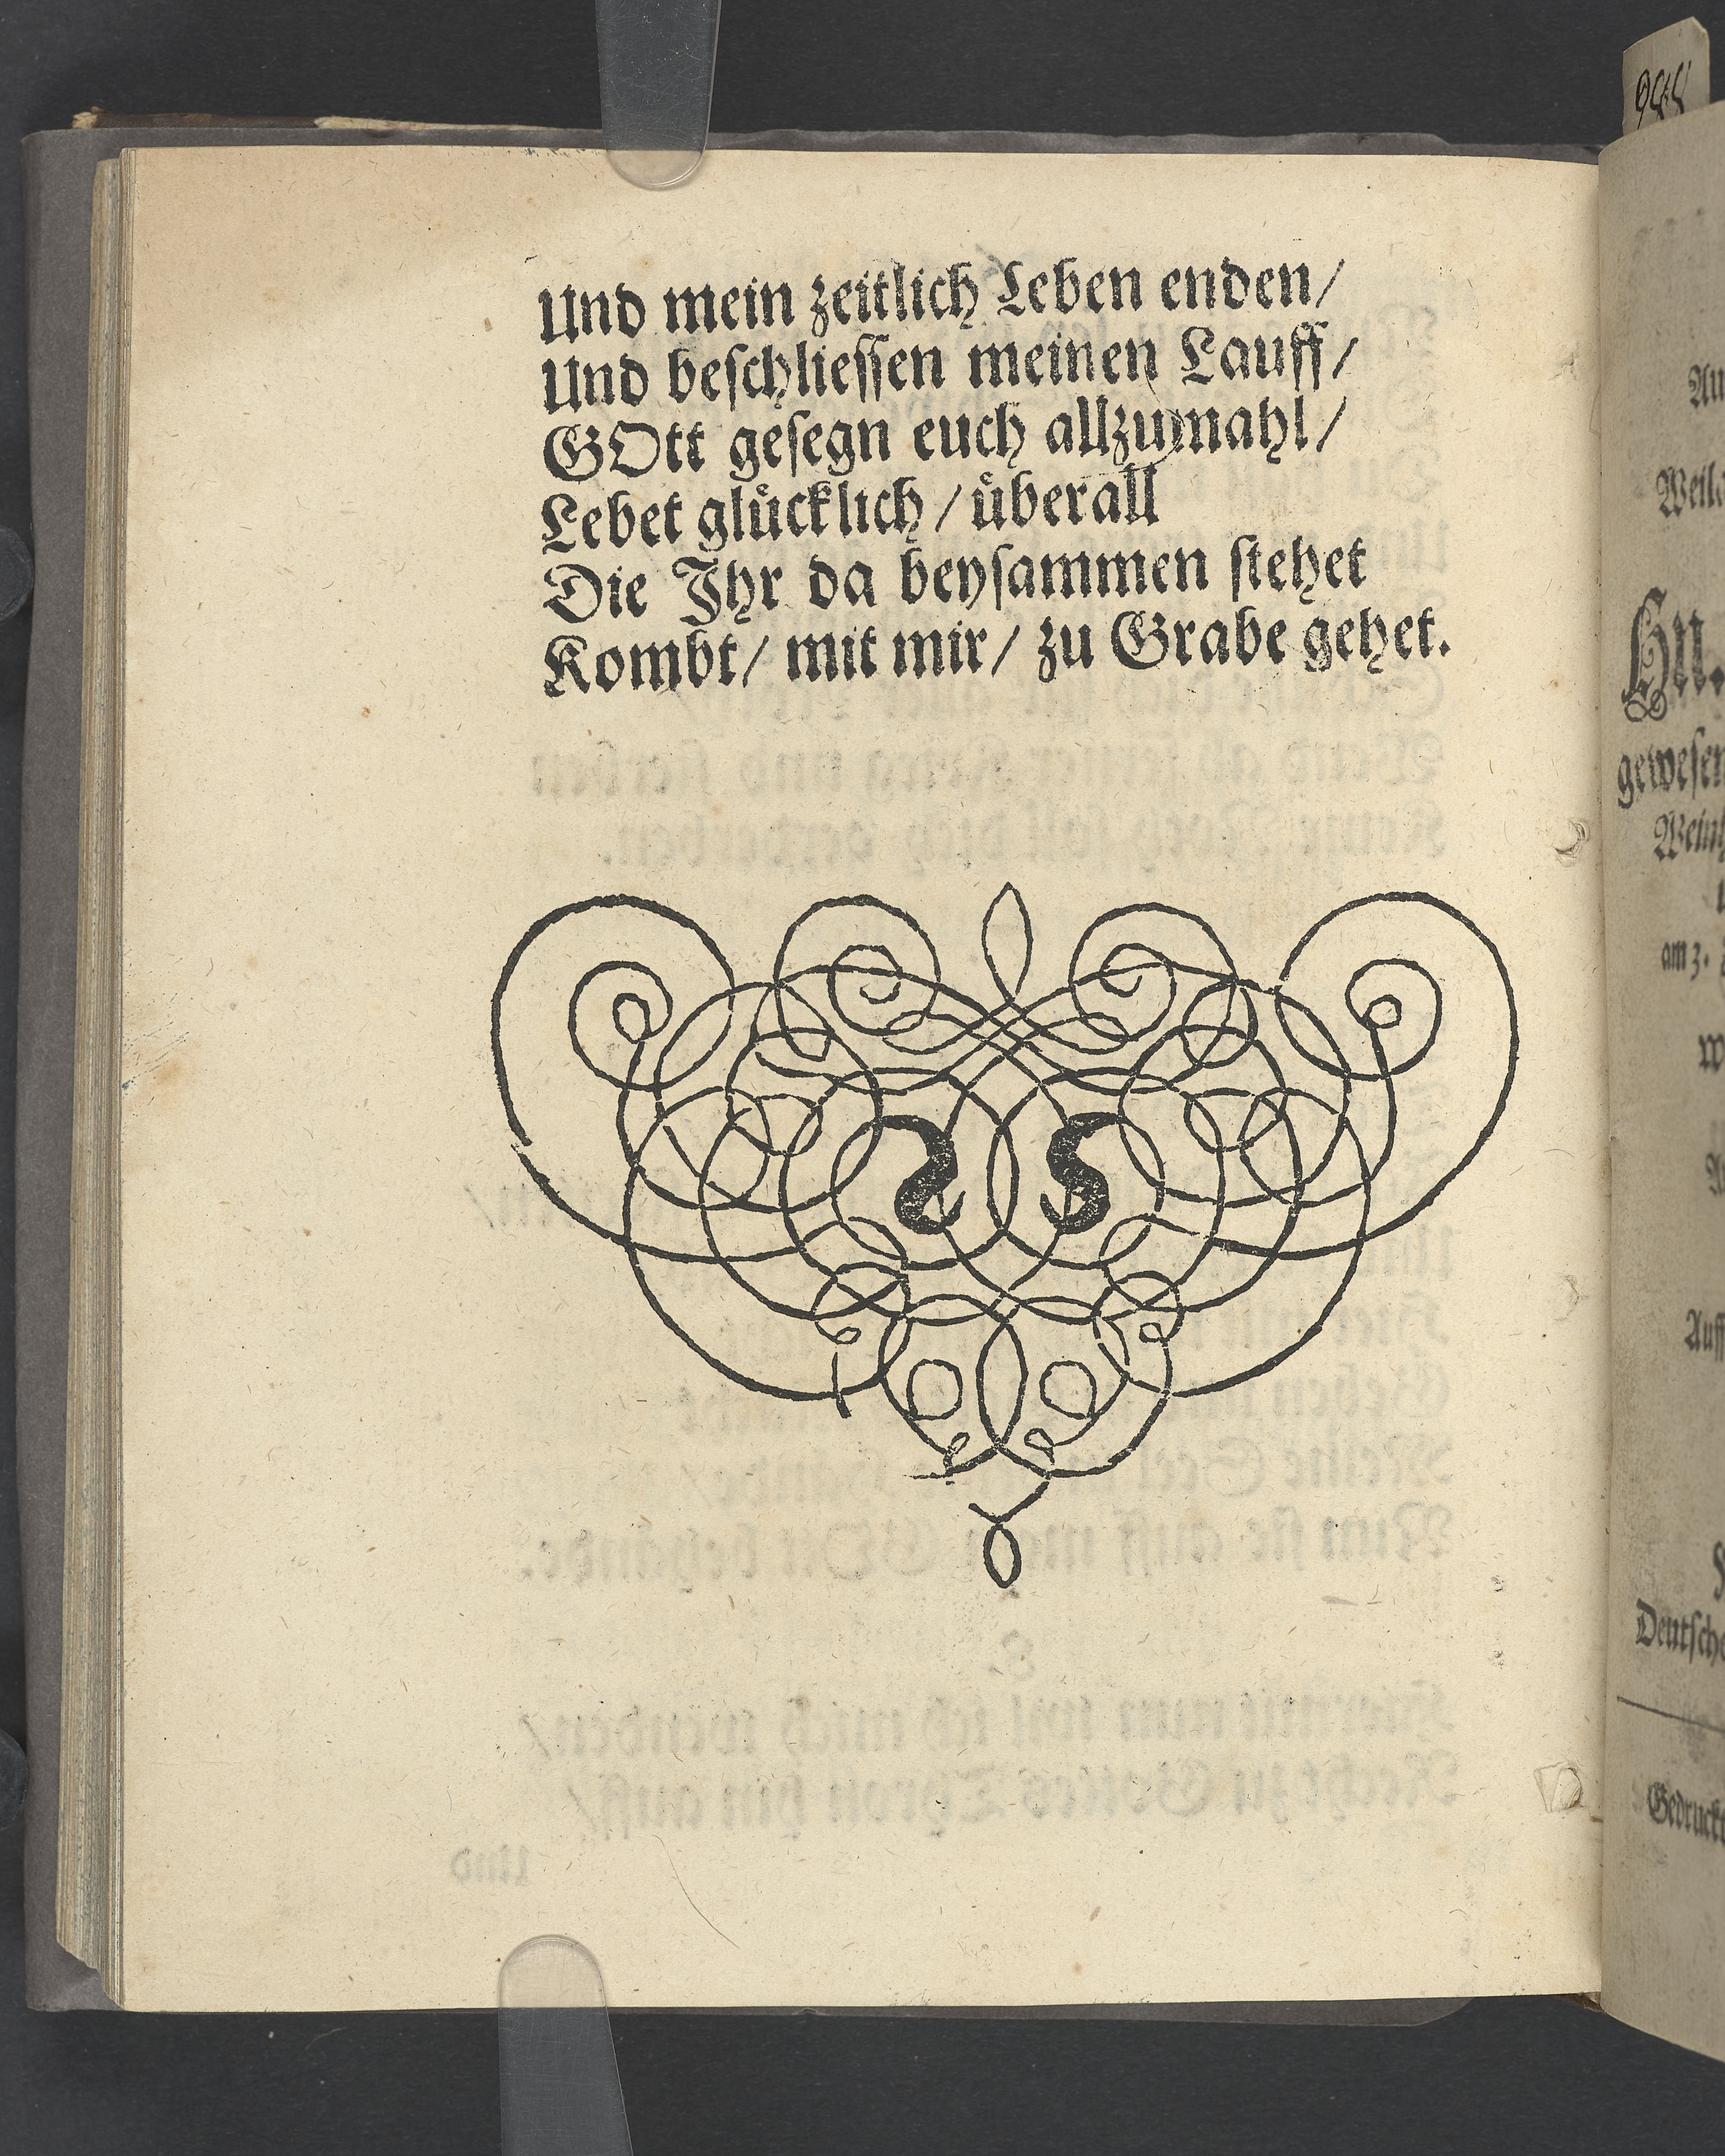 Und mein zeitlich Leben enden/
Und beſchlieſſen meinen Lauff/
GOtt geſegn euch allzumahl/
Lebet gluͤcklich/ uͤberall
Die Ihr da beyſammen ſtehet
Kombt/ mit mir/ zu Grabe gehet.
988
Hn.
am 3.